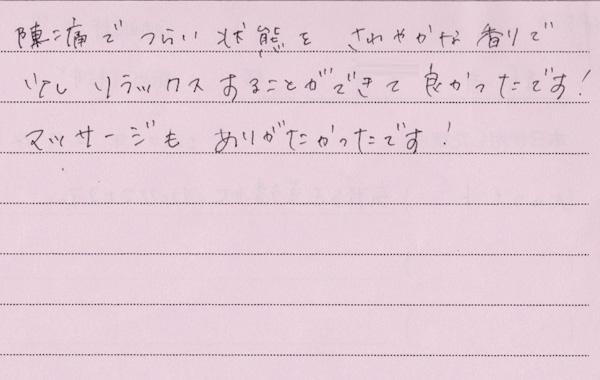 陣痛でつらい状態をさわやかな香りで
少しリラックスすることができて良かったです！
マッサージもありがたかったです！